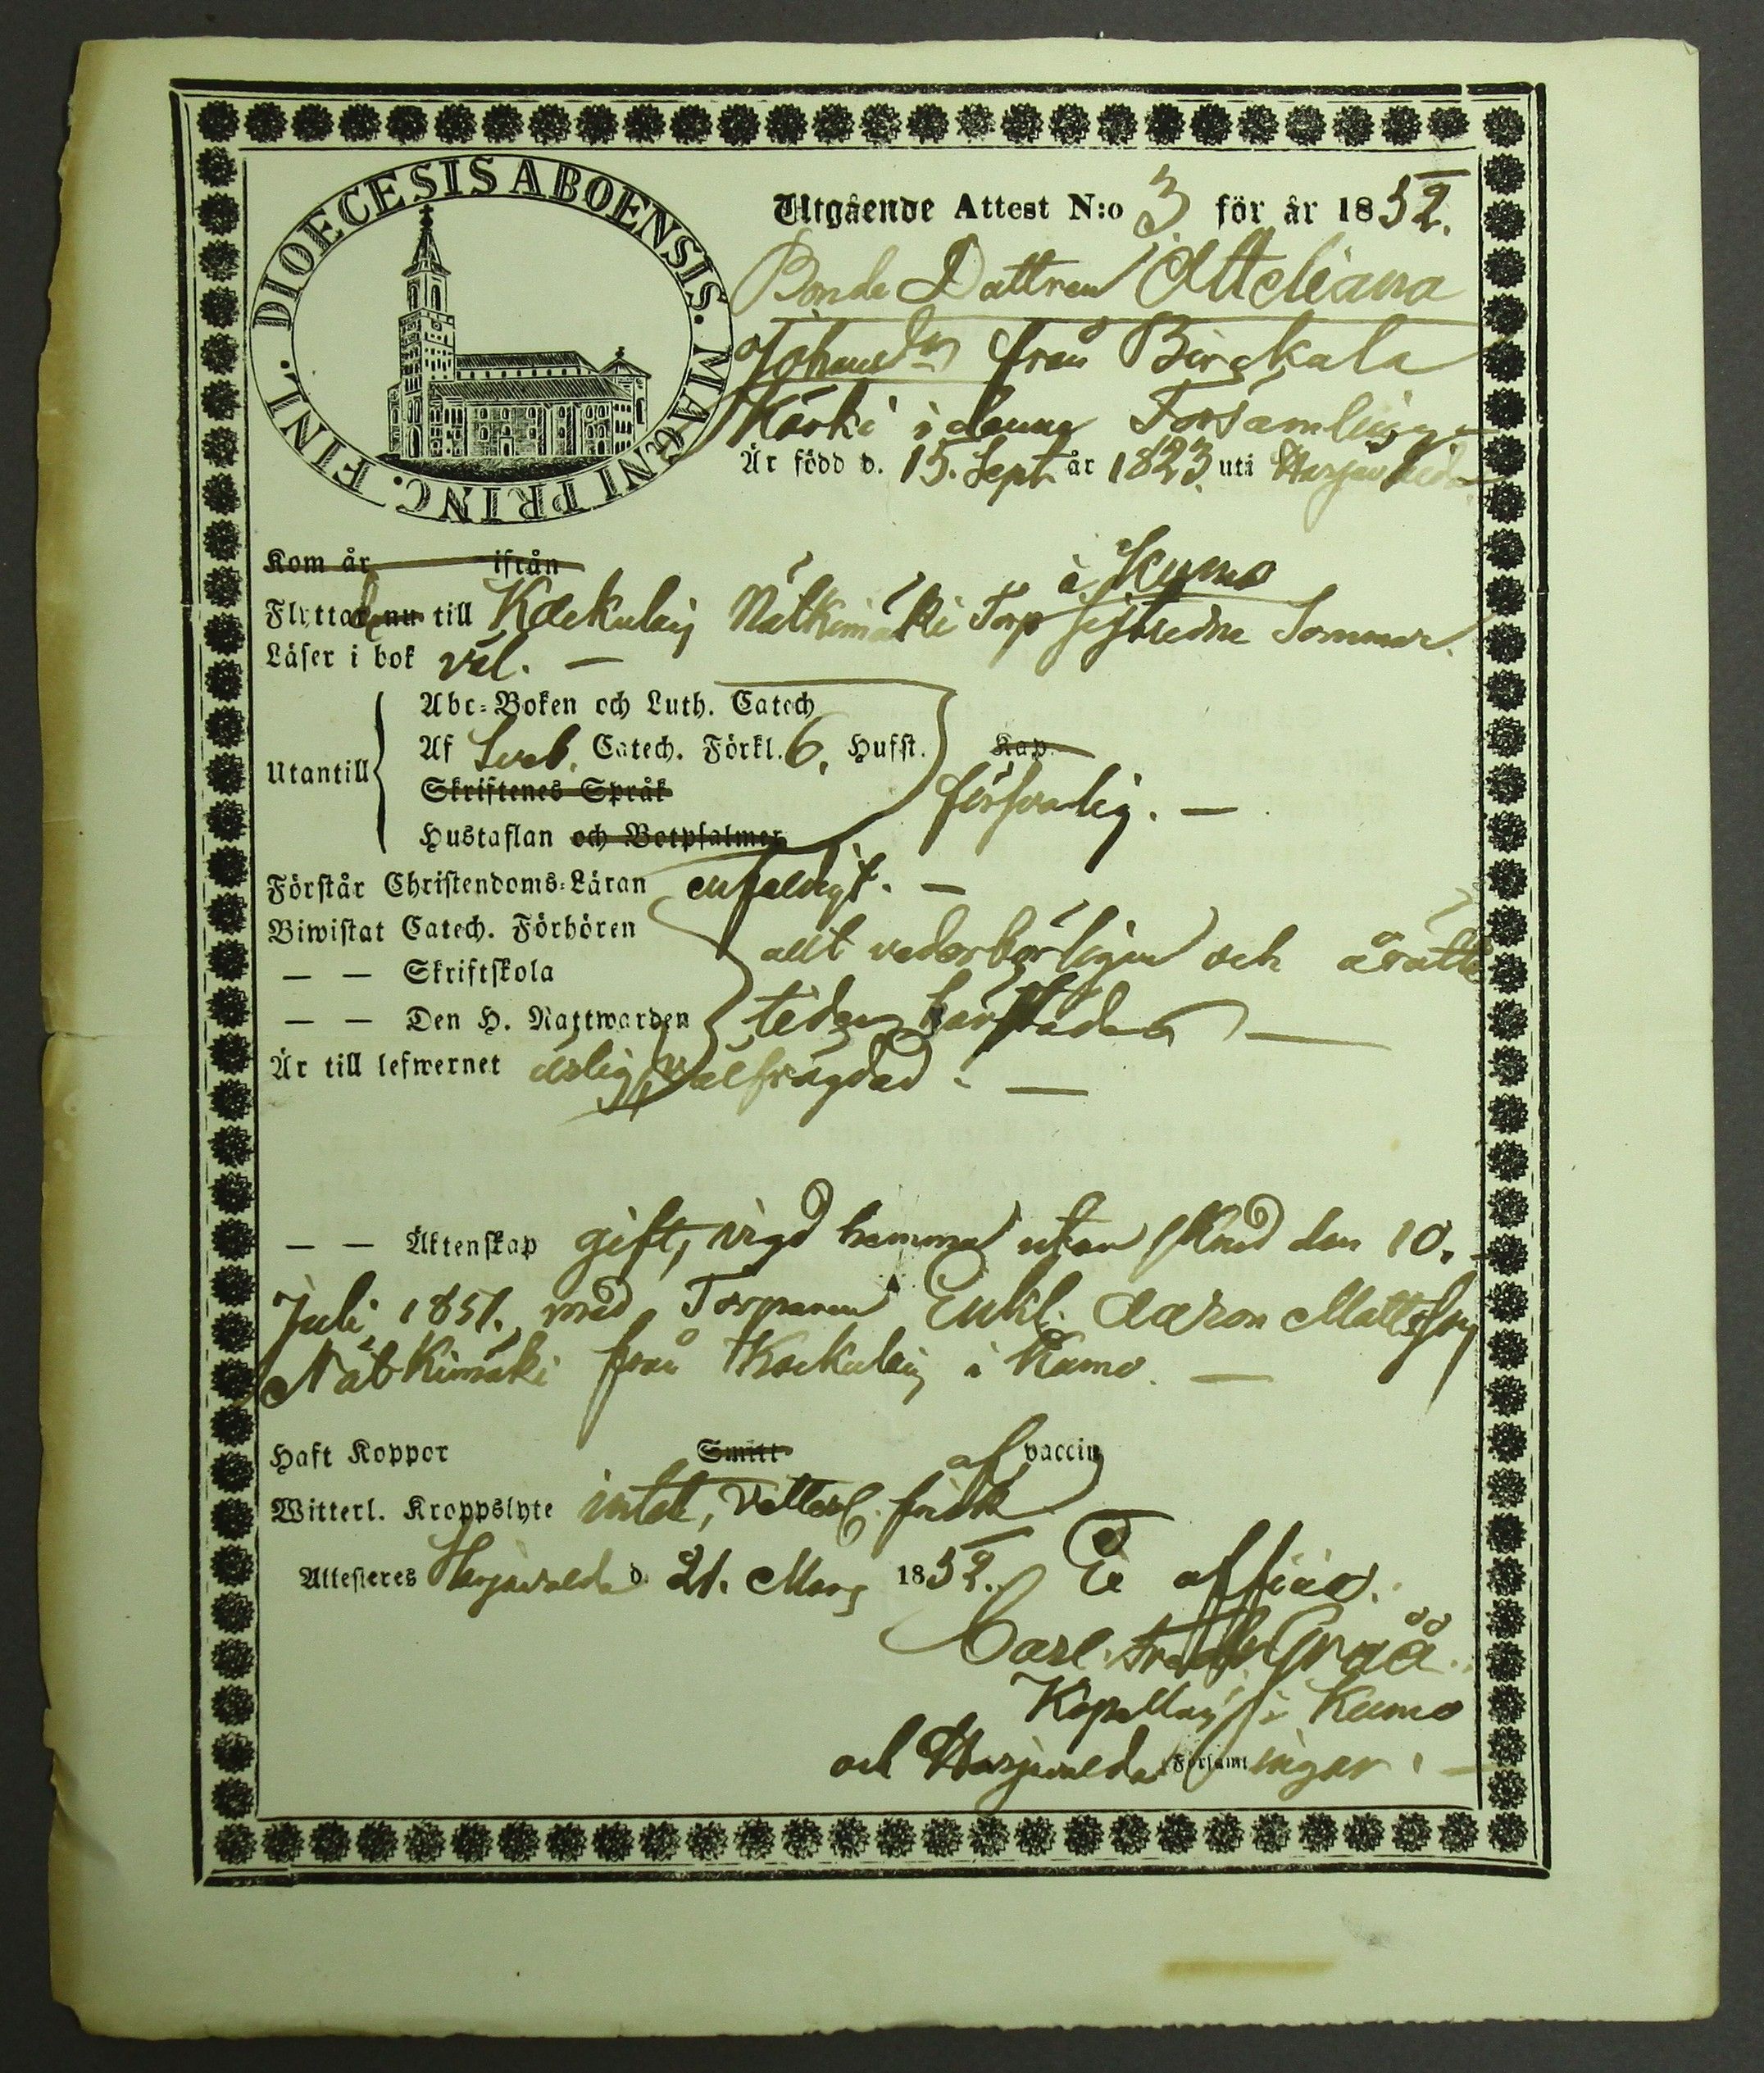 DIOECESIS ABOENSIS. MAGNI PRINC. FINL.
Utgående Attest N:o 3. för år 1852.
Bonde Dottren Otteliana
Johansdr från Birckala
Kärki i denna Församling
Är född d. 15. Sept. år 1823. uti Harjavalda
Kom år ifrån
i Kumo
Flyttade till Kaekuleij Nätkimäki Torp sistledne Sommar.
Läser i bok väl. —
Utantill
Abc-Boken och Luth. Catech
Af Sveb. Catech. Förkl. 6. Hufst. Kap.
Skriftenes Språk
försvarlig. —
Hustaflan och Botpsalmer
Förstår Christendoms-Läran enfaldigt. —
Biwistat Catech. Förhören
allt vederbörligen och å rätta
— — Skriftskola
— — Den H. Nattwarden tider härstädes —
Är till lefwernet ärlig, välfrägdad. —
— — Äktenskap gift, vigd hemma utan den 10.
Juli 1851. med Torparen Enkl. Aaron Mattsson
Nätkimäki från Kaekuleij i Kumo. —
Haft Koppor Smitt af vaccin
Witterl. Kroppslyte intet, frisk
Attesteres Harjavalda d. 21. Mars 1852. Ex officio.
Carl Fredr. Graå.
Kapellan i Kumo
och Harjavalda Församlingar. —